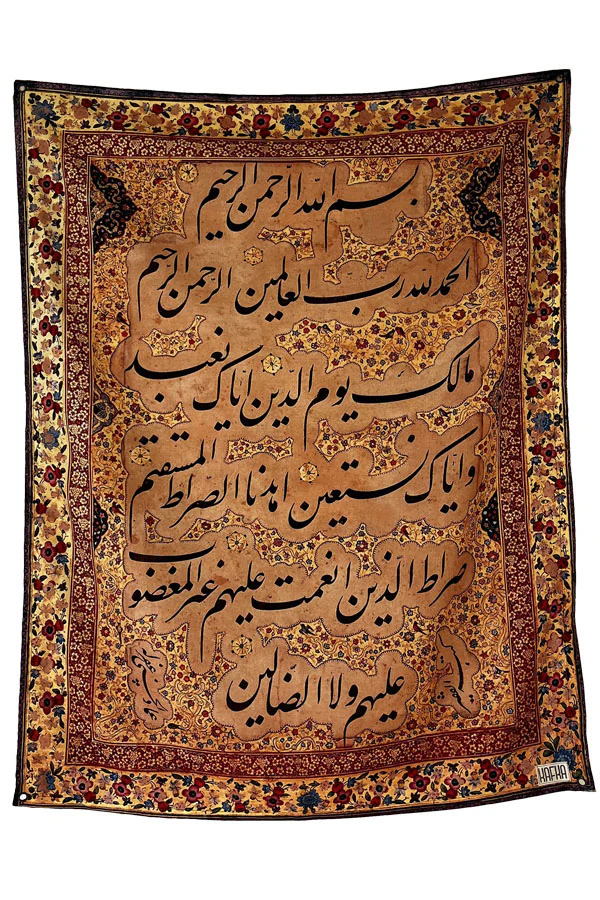 بسم الله الرحمن الرحیم
الحمد لله رب العالمین الرحمن الرحیم
مالک یوم الدین ایاک نعبد
وایاک نستعین اهدنا الصراط المستقیم
صراط الذین انعمت علیهم غیر المغضوب
علیهم ولا الضالین
KAFKA